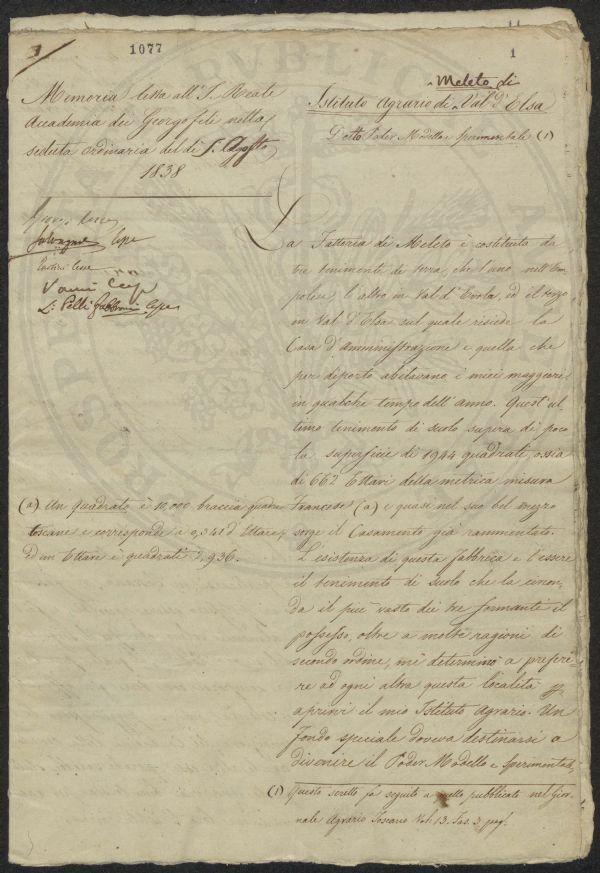 1077
1
Memoria letta all'I. Reale
Accademia dei Georgofili nella
seduta ordinaria del dì 5. Agosto
1838
Vanni
L. Pelli Fabbroni
(a) Un quadrato è 10,000 braccia quadre
toscane e corrisponde a 0,341 d'Ettare,
ed un Ettare è quadrati 2,936.
Meleto di
Istituto Agrario di Val d'Elsa
Detto Poder Modello e Sperimentale (1)
La Fattoria di Meleto è costituita da
tre tenimenti di terra, che l'uno nell'Em
polese, l'altro in Val d'Evola, ed il terzo
in Val d'Elsa sul quale risiede la
Casa d'amministrazione e quella che
per diporto abitavano i miei maggiori
in qualche tempo dell'anno. Quest'ul
timo tenimento di suolo supera di poco
la superficie di 1944 quadrati, ossia
di 662 Ettari della metrica misura
Francese (a) e quasi nel suo bel mezzo
sorge il Casamento già rammentato.
L'esistenza di questa fabbrica e l'essere
il tenimento di suolo che la circon,
da il più vasto dei tre formanti il
possesso, oltre a molte ragioni di
secondo ordine, mi determinò a preferi
re ad ogni altra questa località
aprirvi il mio Istituto Agrario. Un
fondo speciale doveva destinarsi a
divenire il Poder Modello e Sperimental,
(1) Questo scritto fa seguito a quello pubblicato nel Gior
nale Agrario Toscano Vol. 13. Fas. 3. pag.